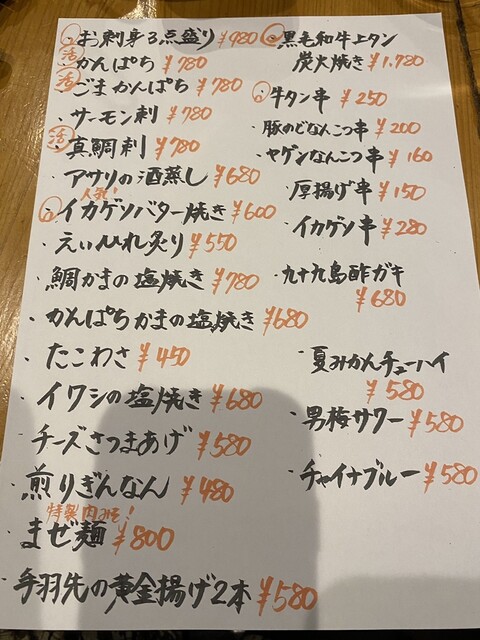 お刺身3点盛り ¥980
活 かんぱち ¥780
活 ごまかんぱち ¥780
・サーモン刺 ¥780
活 真鯛刺 ¥780
・アサリの酒蒸し ¥680
人気!
イカゲソバター焼き ¥600
・えいひれ炙り ¥550
・鯛かまの塩焼き ¥780
・かんぱちかまの塩焼き ¥680
・たこわさ ¥450
・イワシの塩焼き ¥680
・チーズさつまあげ ¥580
・煎りぎんなん ¥480
特製肉みそ!
・まぜ麺 ¥800
・手羽先の黄金揚げ2本 ¥580
黒毛和牛上タン
炭火焼き ¥1,780
・牛タン串 ¥250
・豚のどなんこつ串 ¥200
・ヤゲンなんこつ串 ¥160
・厚揚げ串 ¥150
・イカゲソ串 ¥280
・九十九島酢ガキ
¥680
・夏みかんチューハイ
¥580
・男梅サワー ¥580
・チャイナブルー ¥580